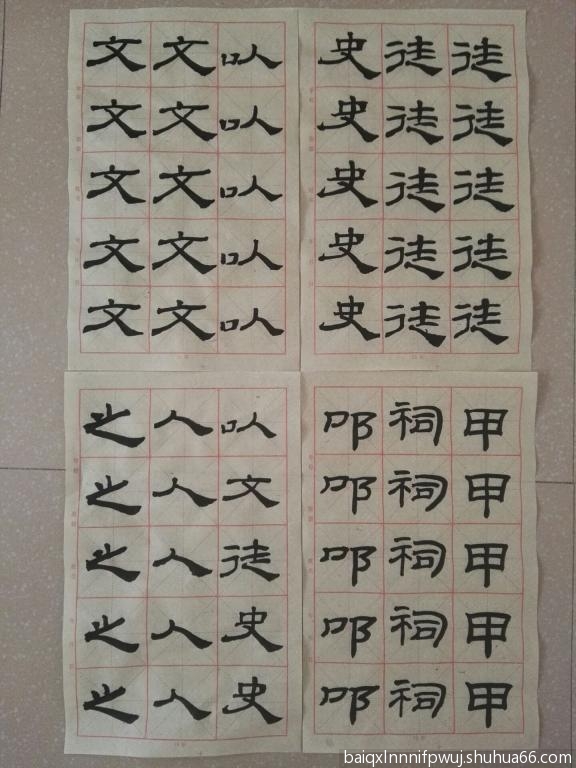 徒徒徒徒徒
徒徒徒徒徒
史史史史史
以以以以以
文文文文文
文文文文文
甲甲甲甲甲
祠祠祠祠祠
叩叩叩叩叩
以文徒史史
人人人人人
之之之之之
baiqxlnnnifpwuj.shuhua66.com